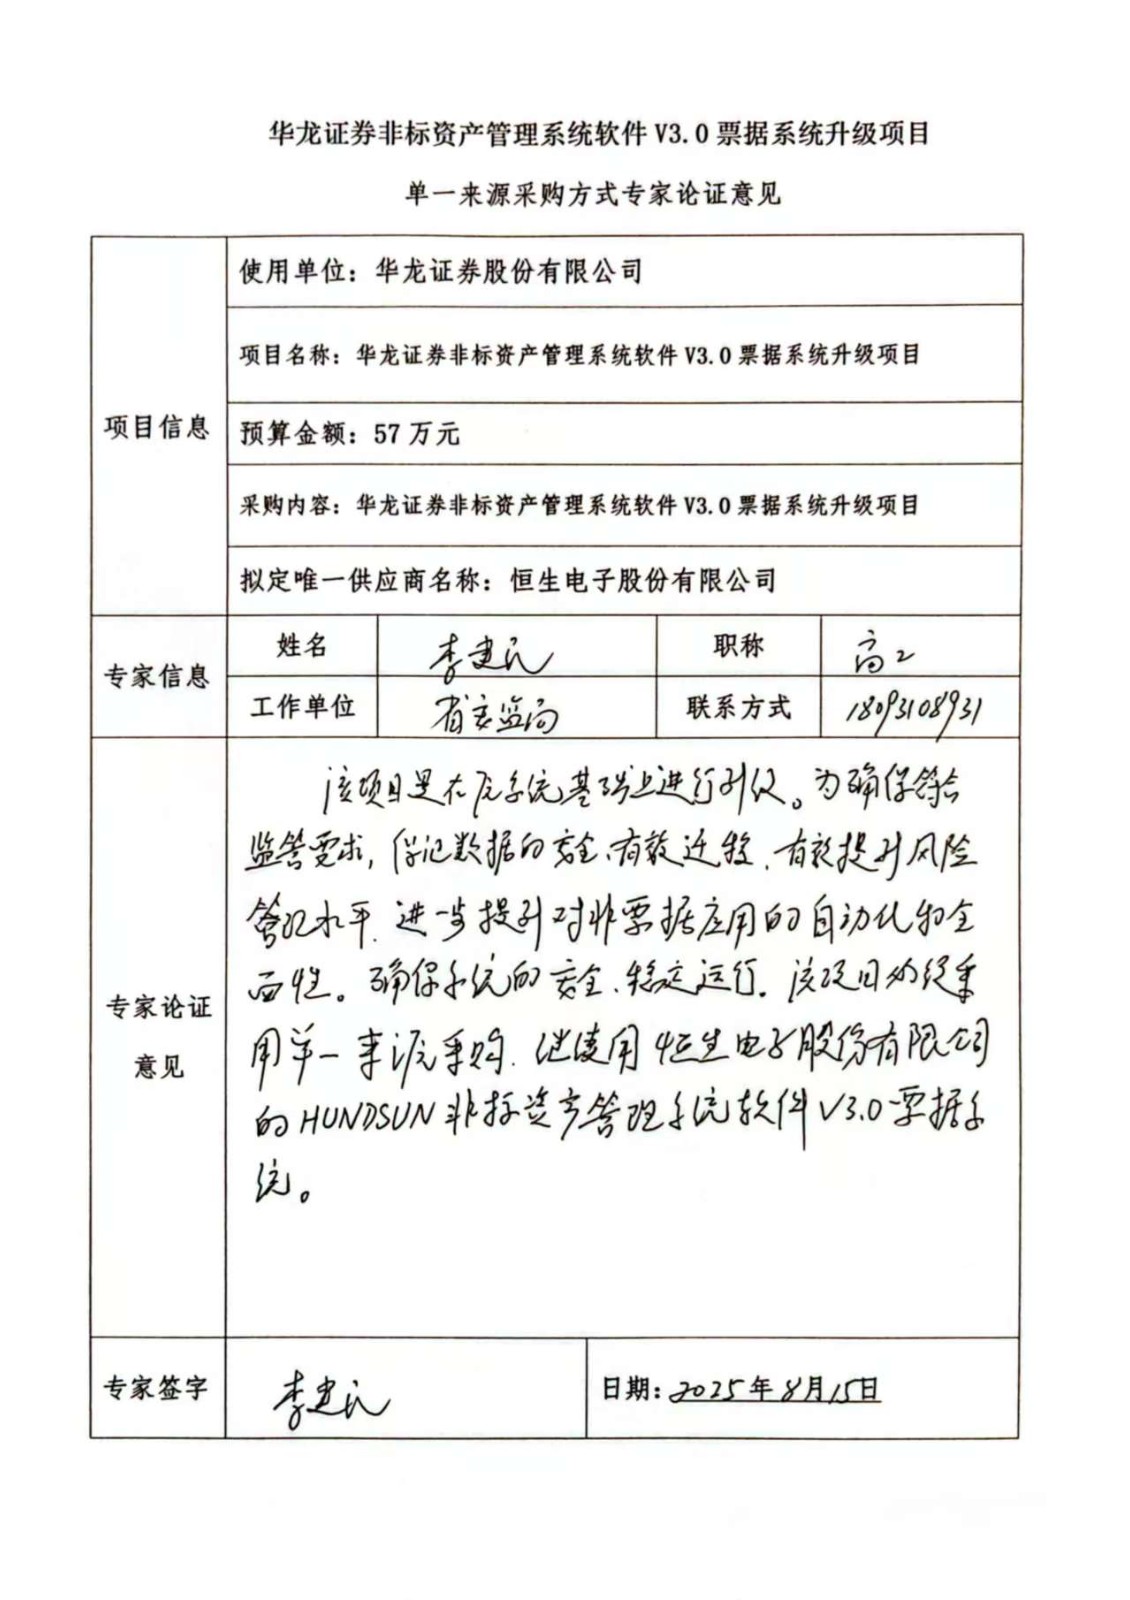 华龙证券非标资产管理系统软件 V3.0 票据系统升级项目
单一来源采购方式专家论证意见
项目信息
使用单位：华龙证券股份有限公司
项目名称：华龙证券非标资产管理系统软件 V3.0 票据系统升级项目
预算金额：57 万元
采购内容：华龙证券非标资产管理系统软件 V3.0 票据系统升级项目
拟定唯一供应商名称：恒生电子股份有限公司
专家信息
姓名 李建民 职称 高工
工作单位 联系方式 18093108931
专家论证
意见
该项目是在原系统基础上进行升级。为确保符合
监管要求，保证数据的安全、有效迁移、有效提升风险
管理水平、进一步提升对非票据应用的自动化和全
面性。确保系统的安全、稳定运行。该项目继续采
用单一来源采购、继续用恒生电子股份有限公司
的HUNDSUN非标资产管理系统软件V3.0票据系
统。
专家签字 李建民 日期：2025年8月15日